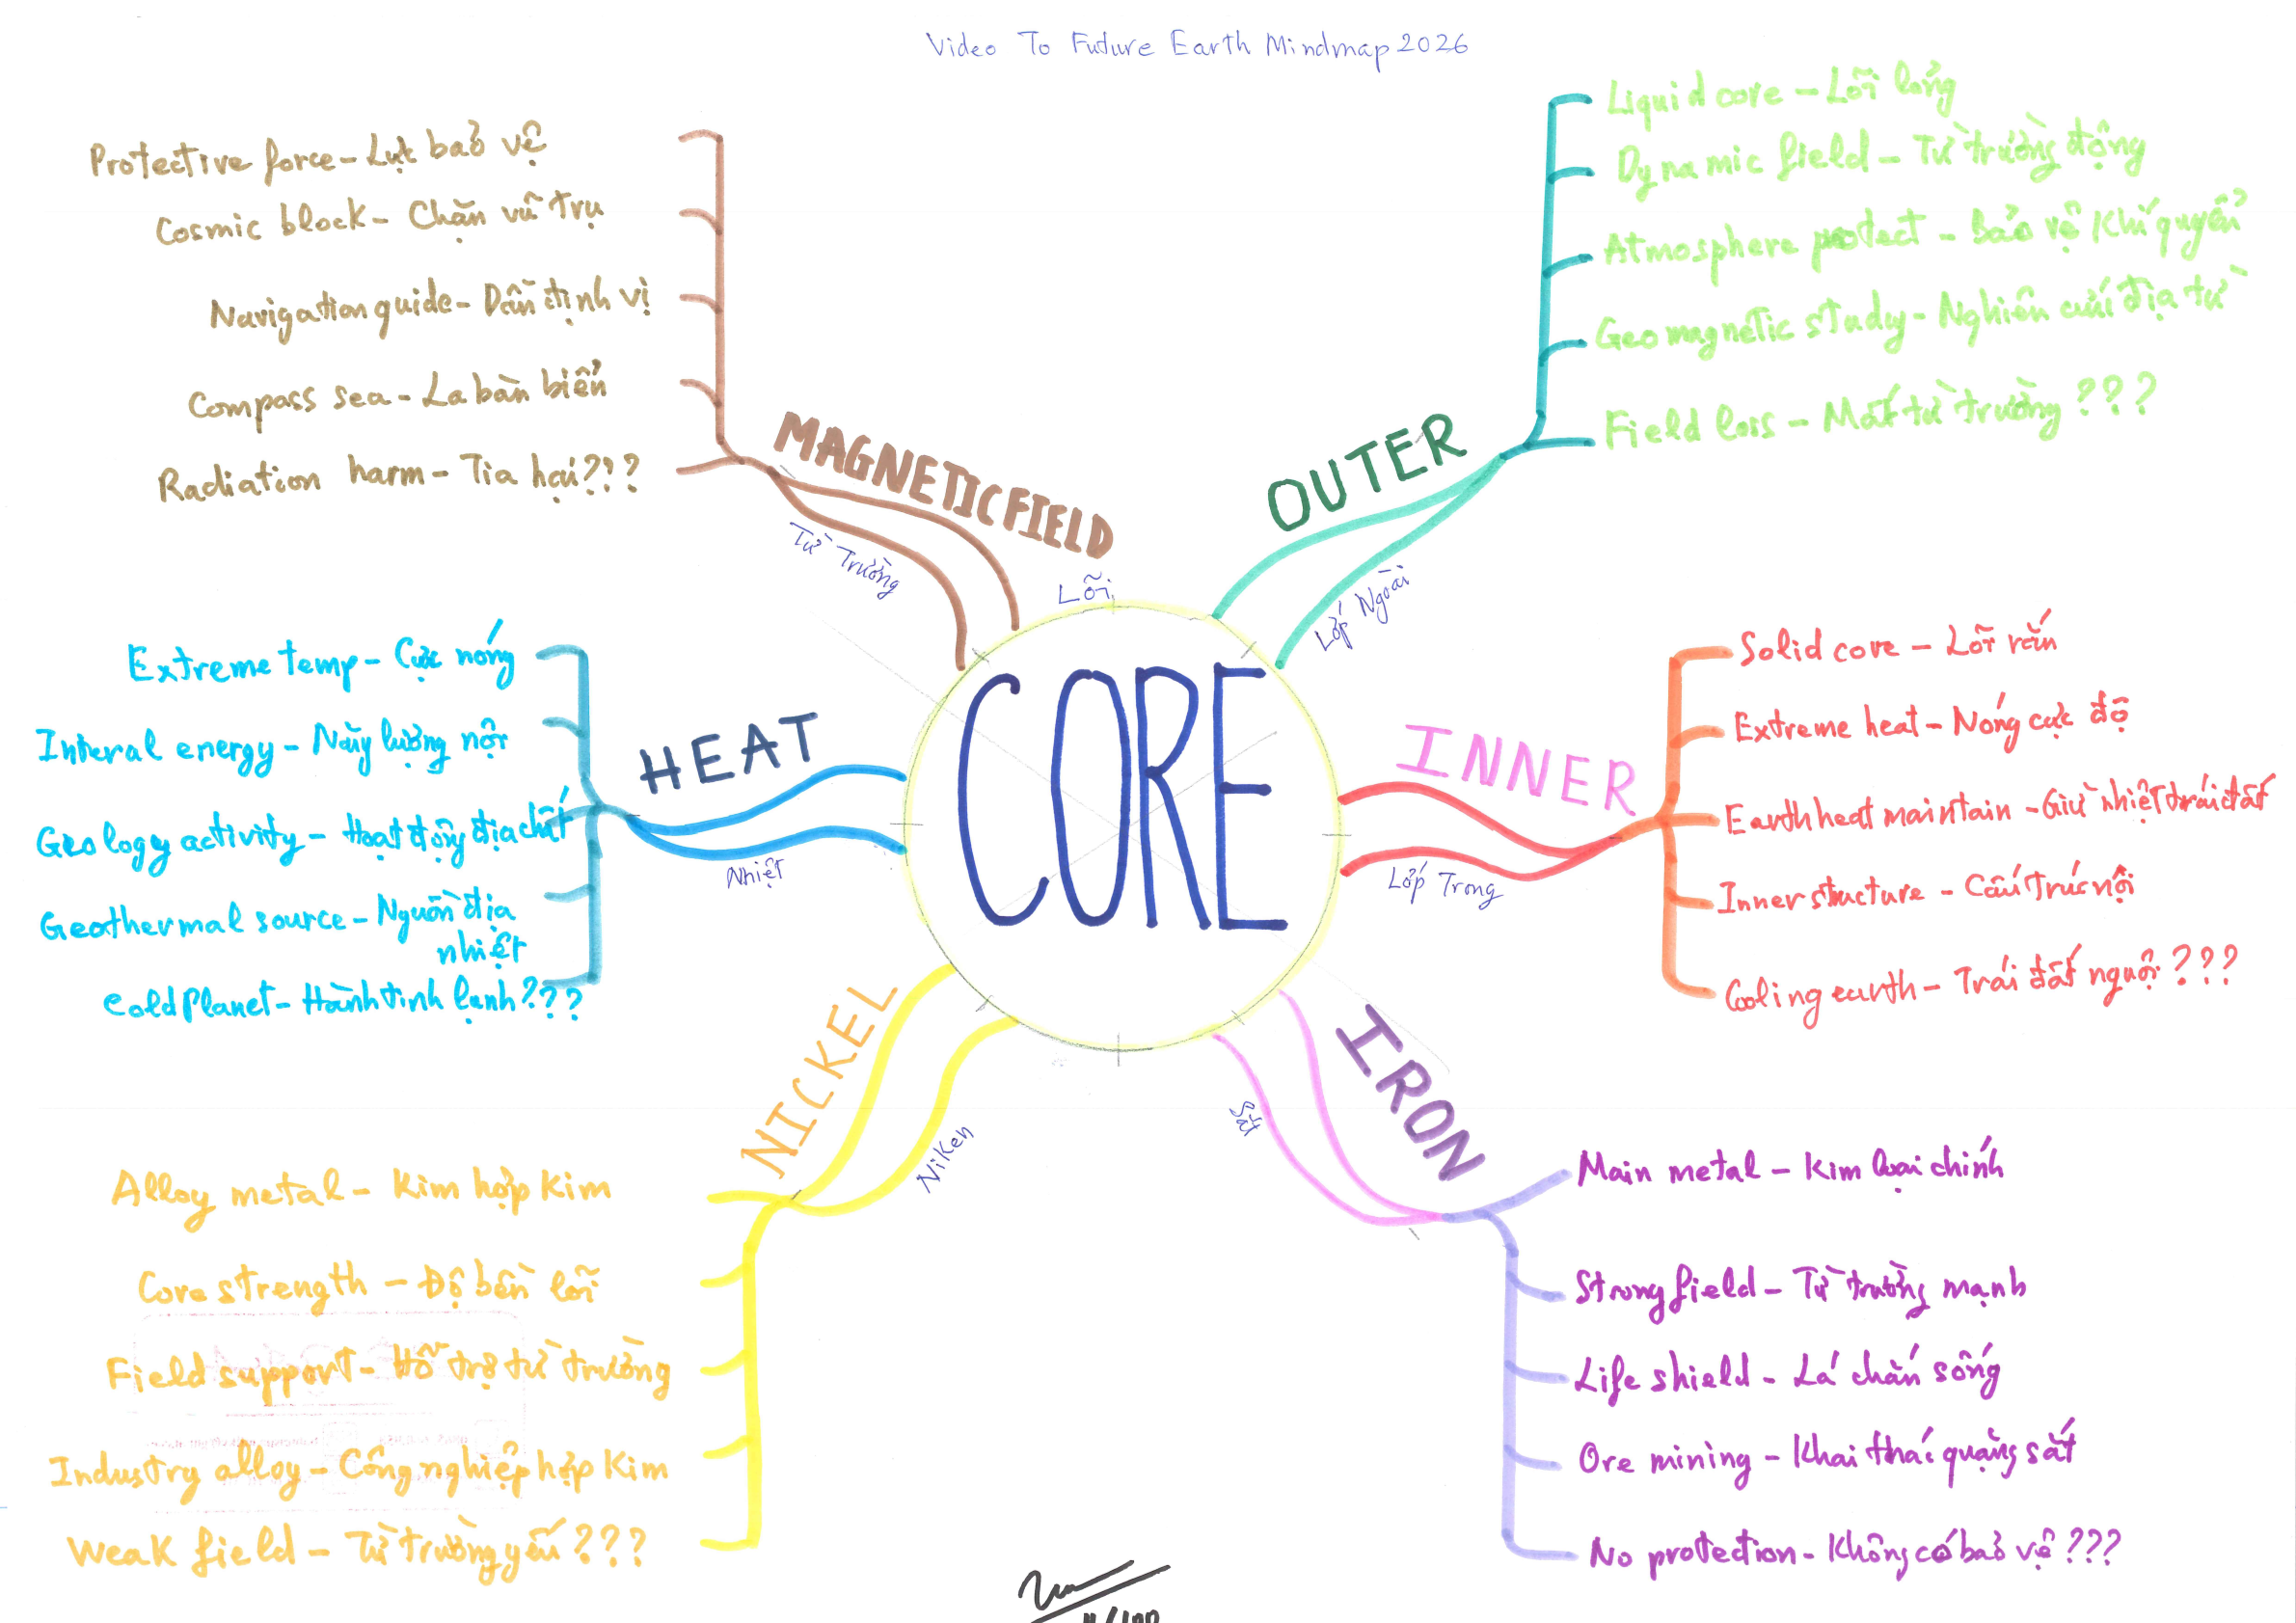 Video To Future Earth Mindmap 2026
CORE
Lõi
MAGNETIC FIELD
Từ Trường
Protective force - Lực bảo vệ
Cosmic block - Chặn vũ trụ
Navigation guide - Dẫn định vị
Compass sea - La bàn biển
Radiation harm - Tia hại???
OUTER
Lớp Ngoài
Liquid core - Lõi lỏng
Dynamic field - Từ trường động
Atmosphere protect - Bảo vệ Khí quyển
Geomagnetic study - Nghiên cứu địa từ
Field loss - Mất từ trường???
HEAT
Nhiệt
Extreme temp - Cực nóng
energy - lượng nội
Geology activity - Hoạt động địa chất
Geothermal source - Nguồn địa
nhiệt
Cold Planet - Hành tinh lạnh???
INNER
Lớp Trong
Solid core - Lõi rắn
Extreme heat - Nóng cực độ
Earth heat maintain - Giữ nhiệt trái đất
Inner structure - Cấu trúc nội
Cooling earth - Trái đất nguội???
NICKEL
Niken
Alloy metal - Kim hợp Kim
Core strength - Độ bền lõi
Field support - Hỗ trợ từ trường
Industry alloy - Công nghiệp hợp Kim
Weak field - Từ trường yếu???
IRON
Sắt
Main metal - Kim loại chính
Strong field - Từ trường mạnh
Life shield - Lá chắn sống
Ore mining - Khai thác quặng sắt
No protection - Không có bảo vệ???